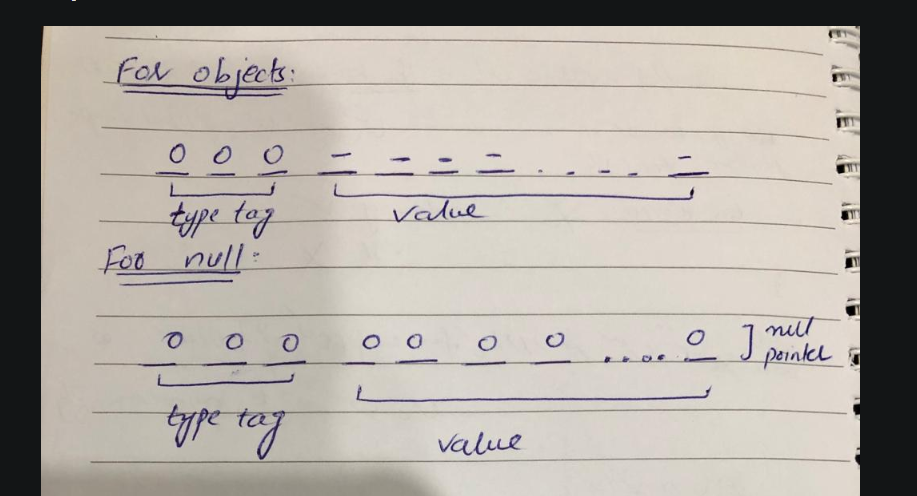 For objects:
0 0 0 - - - - . . . . -
type tag value
For null:
0 0 0 0 0 0 0 .... 0 ] null pointer
type tag
value